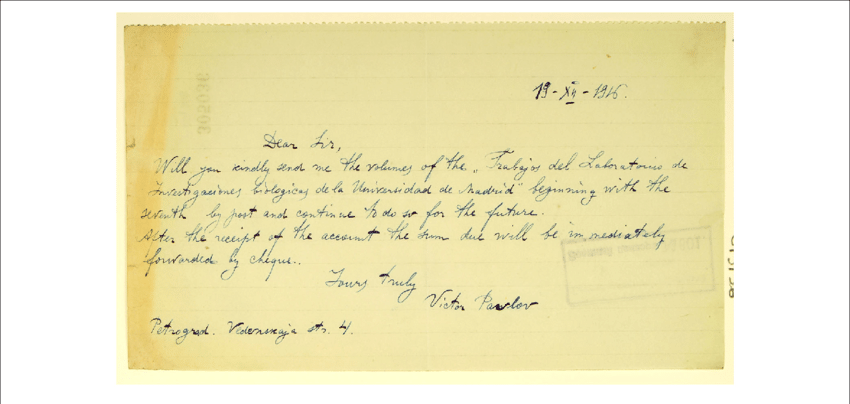 19-XII-1915.
Dear Sir,
Will you kindly send me the volumes of the „Trabajos del Laboratorio de
Investigaciones biologicas de la Universidad de Madrid" beginning with the
seventh by post and continue to do so for the future.
After the receipt of the account the sum due will be immediately
forwarded by cheque..
Yours truly
Victor Pavlov
Petrograd. Vedenskaja str. 4.
305036